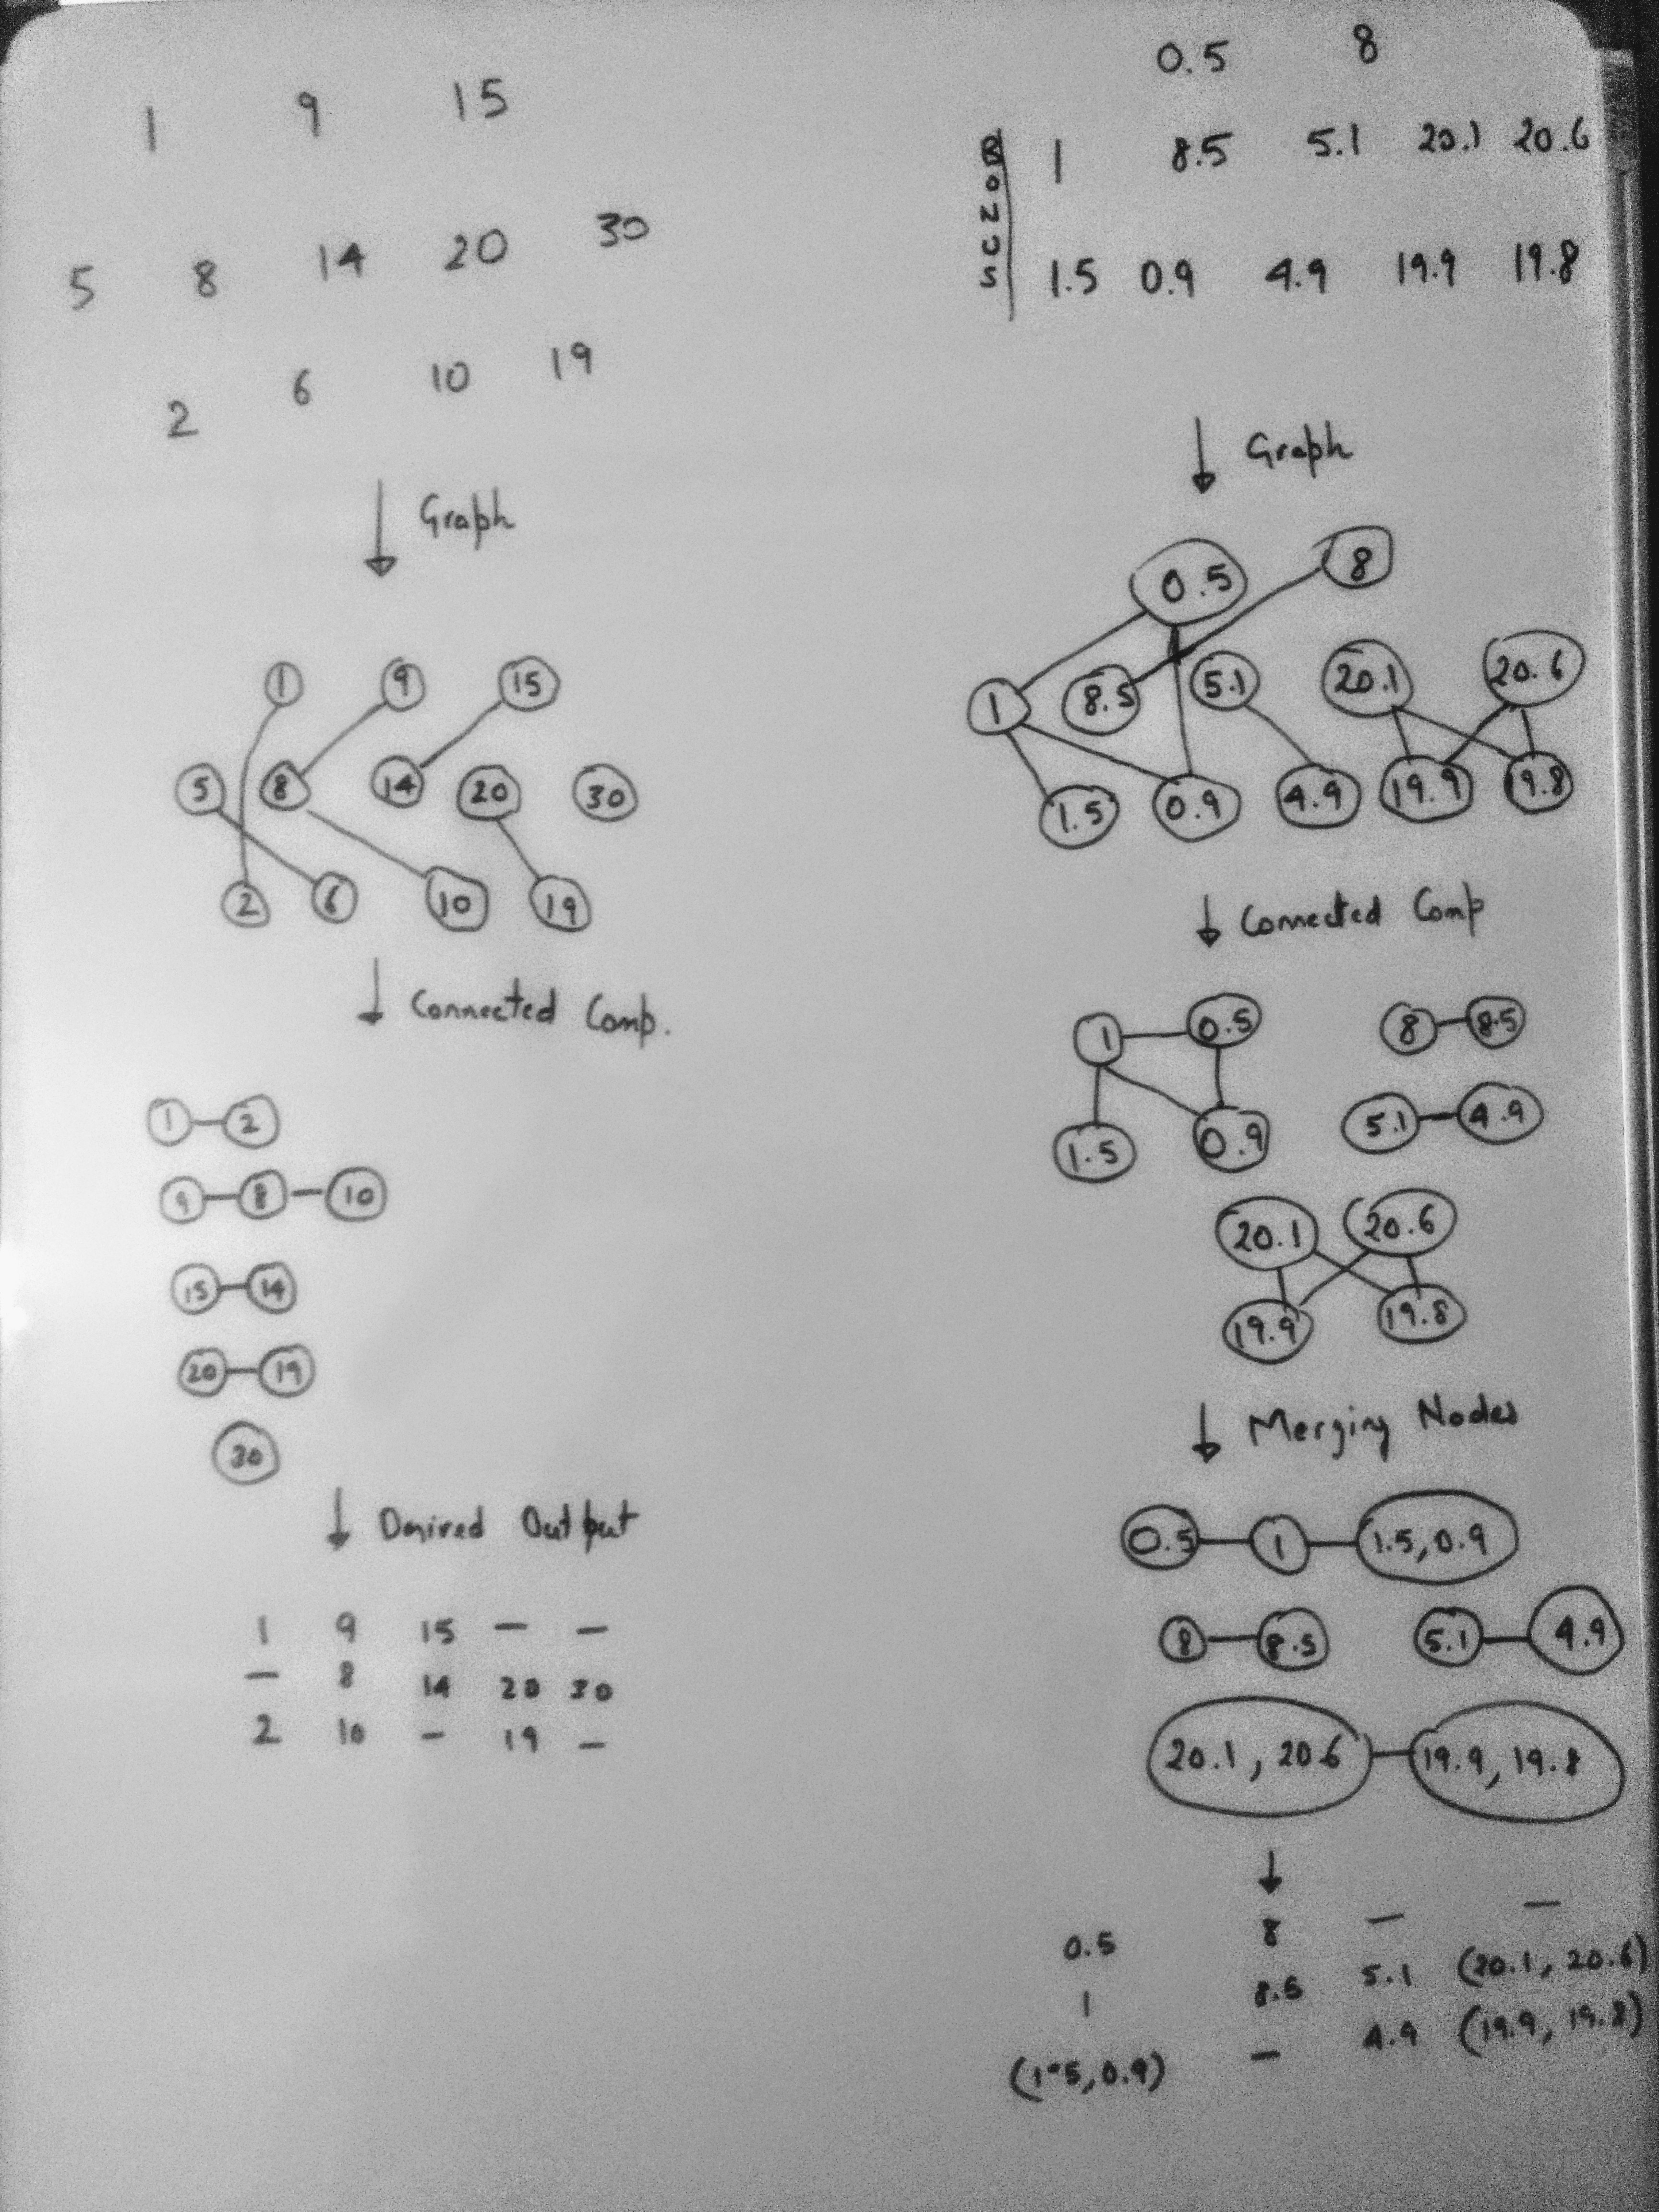 1 9 15
5 8 14 20 30
2 6 10 19
Graph
1 9 15
5 8 14 20 30
2 6 10 19
Connected Comp.
1 2
9 8 10
15 14
20 19
30
Desired Output
1 9 15 — —
— 8 14 20 30
2 10 — 19 —
BONUS
0.5 8
1 8.5 5.1 20.1 20.6
1.5 0.9 4.9 19.9 19.8
Graph
0.5 8
1 8.5 5.1 20.1 20.6
1.5 0.9 4.9 19.9 19.8
Connected Comp
1 0.5 8 8.5
1.5 0.9 5.1 4.9
20.1 20.6
19.9 19.8
Merging Nodes
0.5 1 1.5, 0.9
8 8.5 5.1 4.9
20.1, 20.6 19.9, 19.8
0.5 8 — —
1 8.5 5.1 (20.1, 20.6)
(1.5, 0.9) — 4.9 (19.9, 19.8)